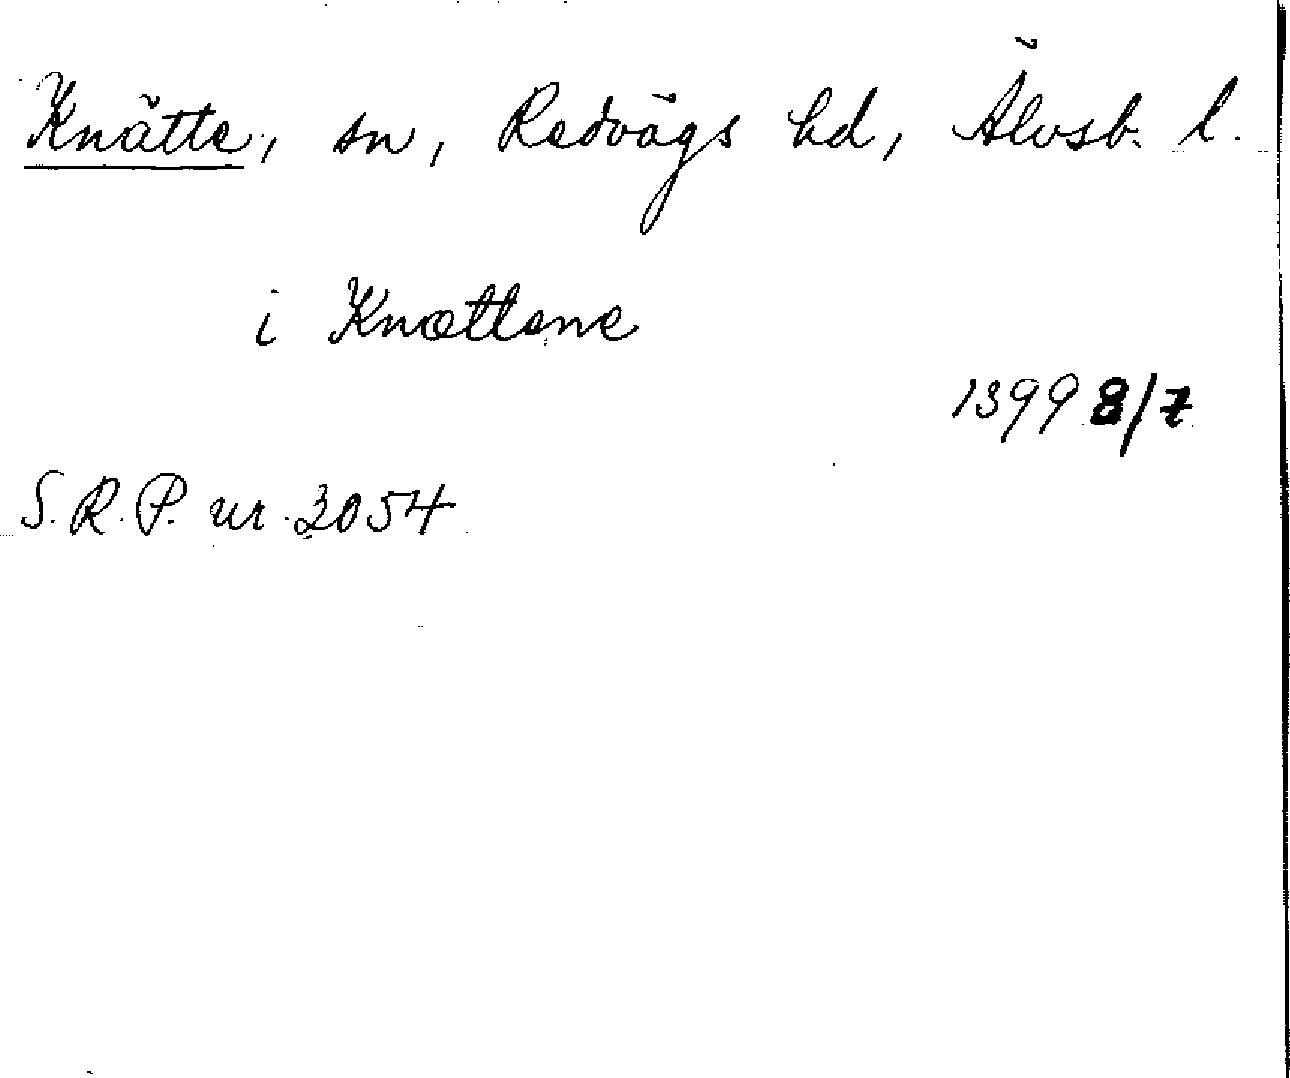 Knätte, sn, Redvägs hd, Älvsb. l.
i Knættene
1399 8/7
S.R.P. nr. 3054